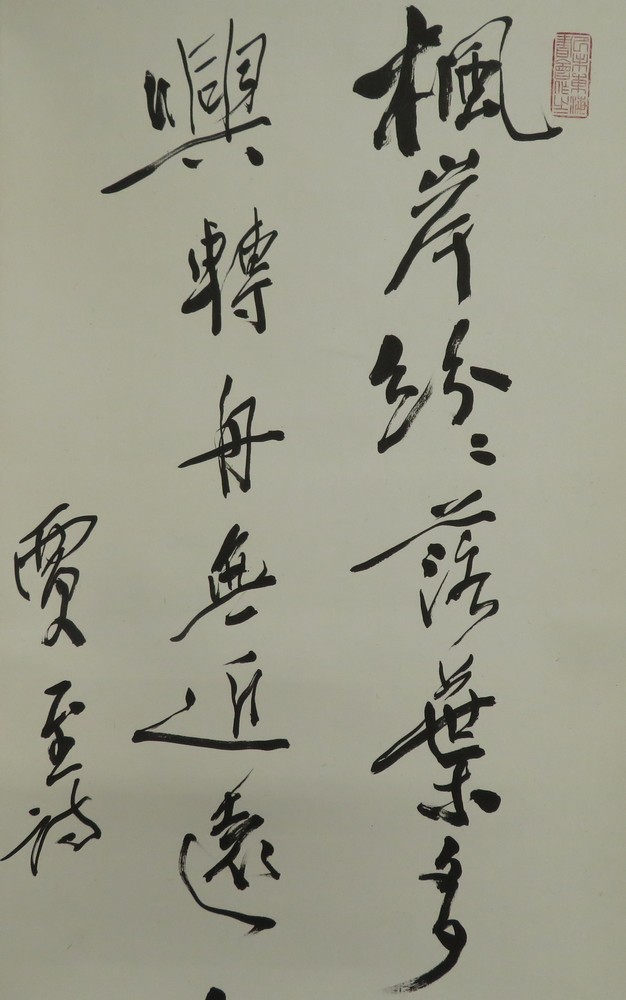 楓岸紛々落葉多
興轉舟無近遠
賈至詩